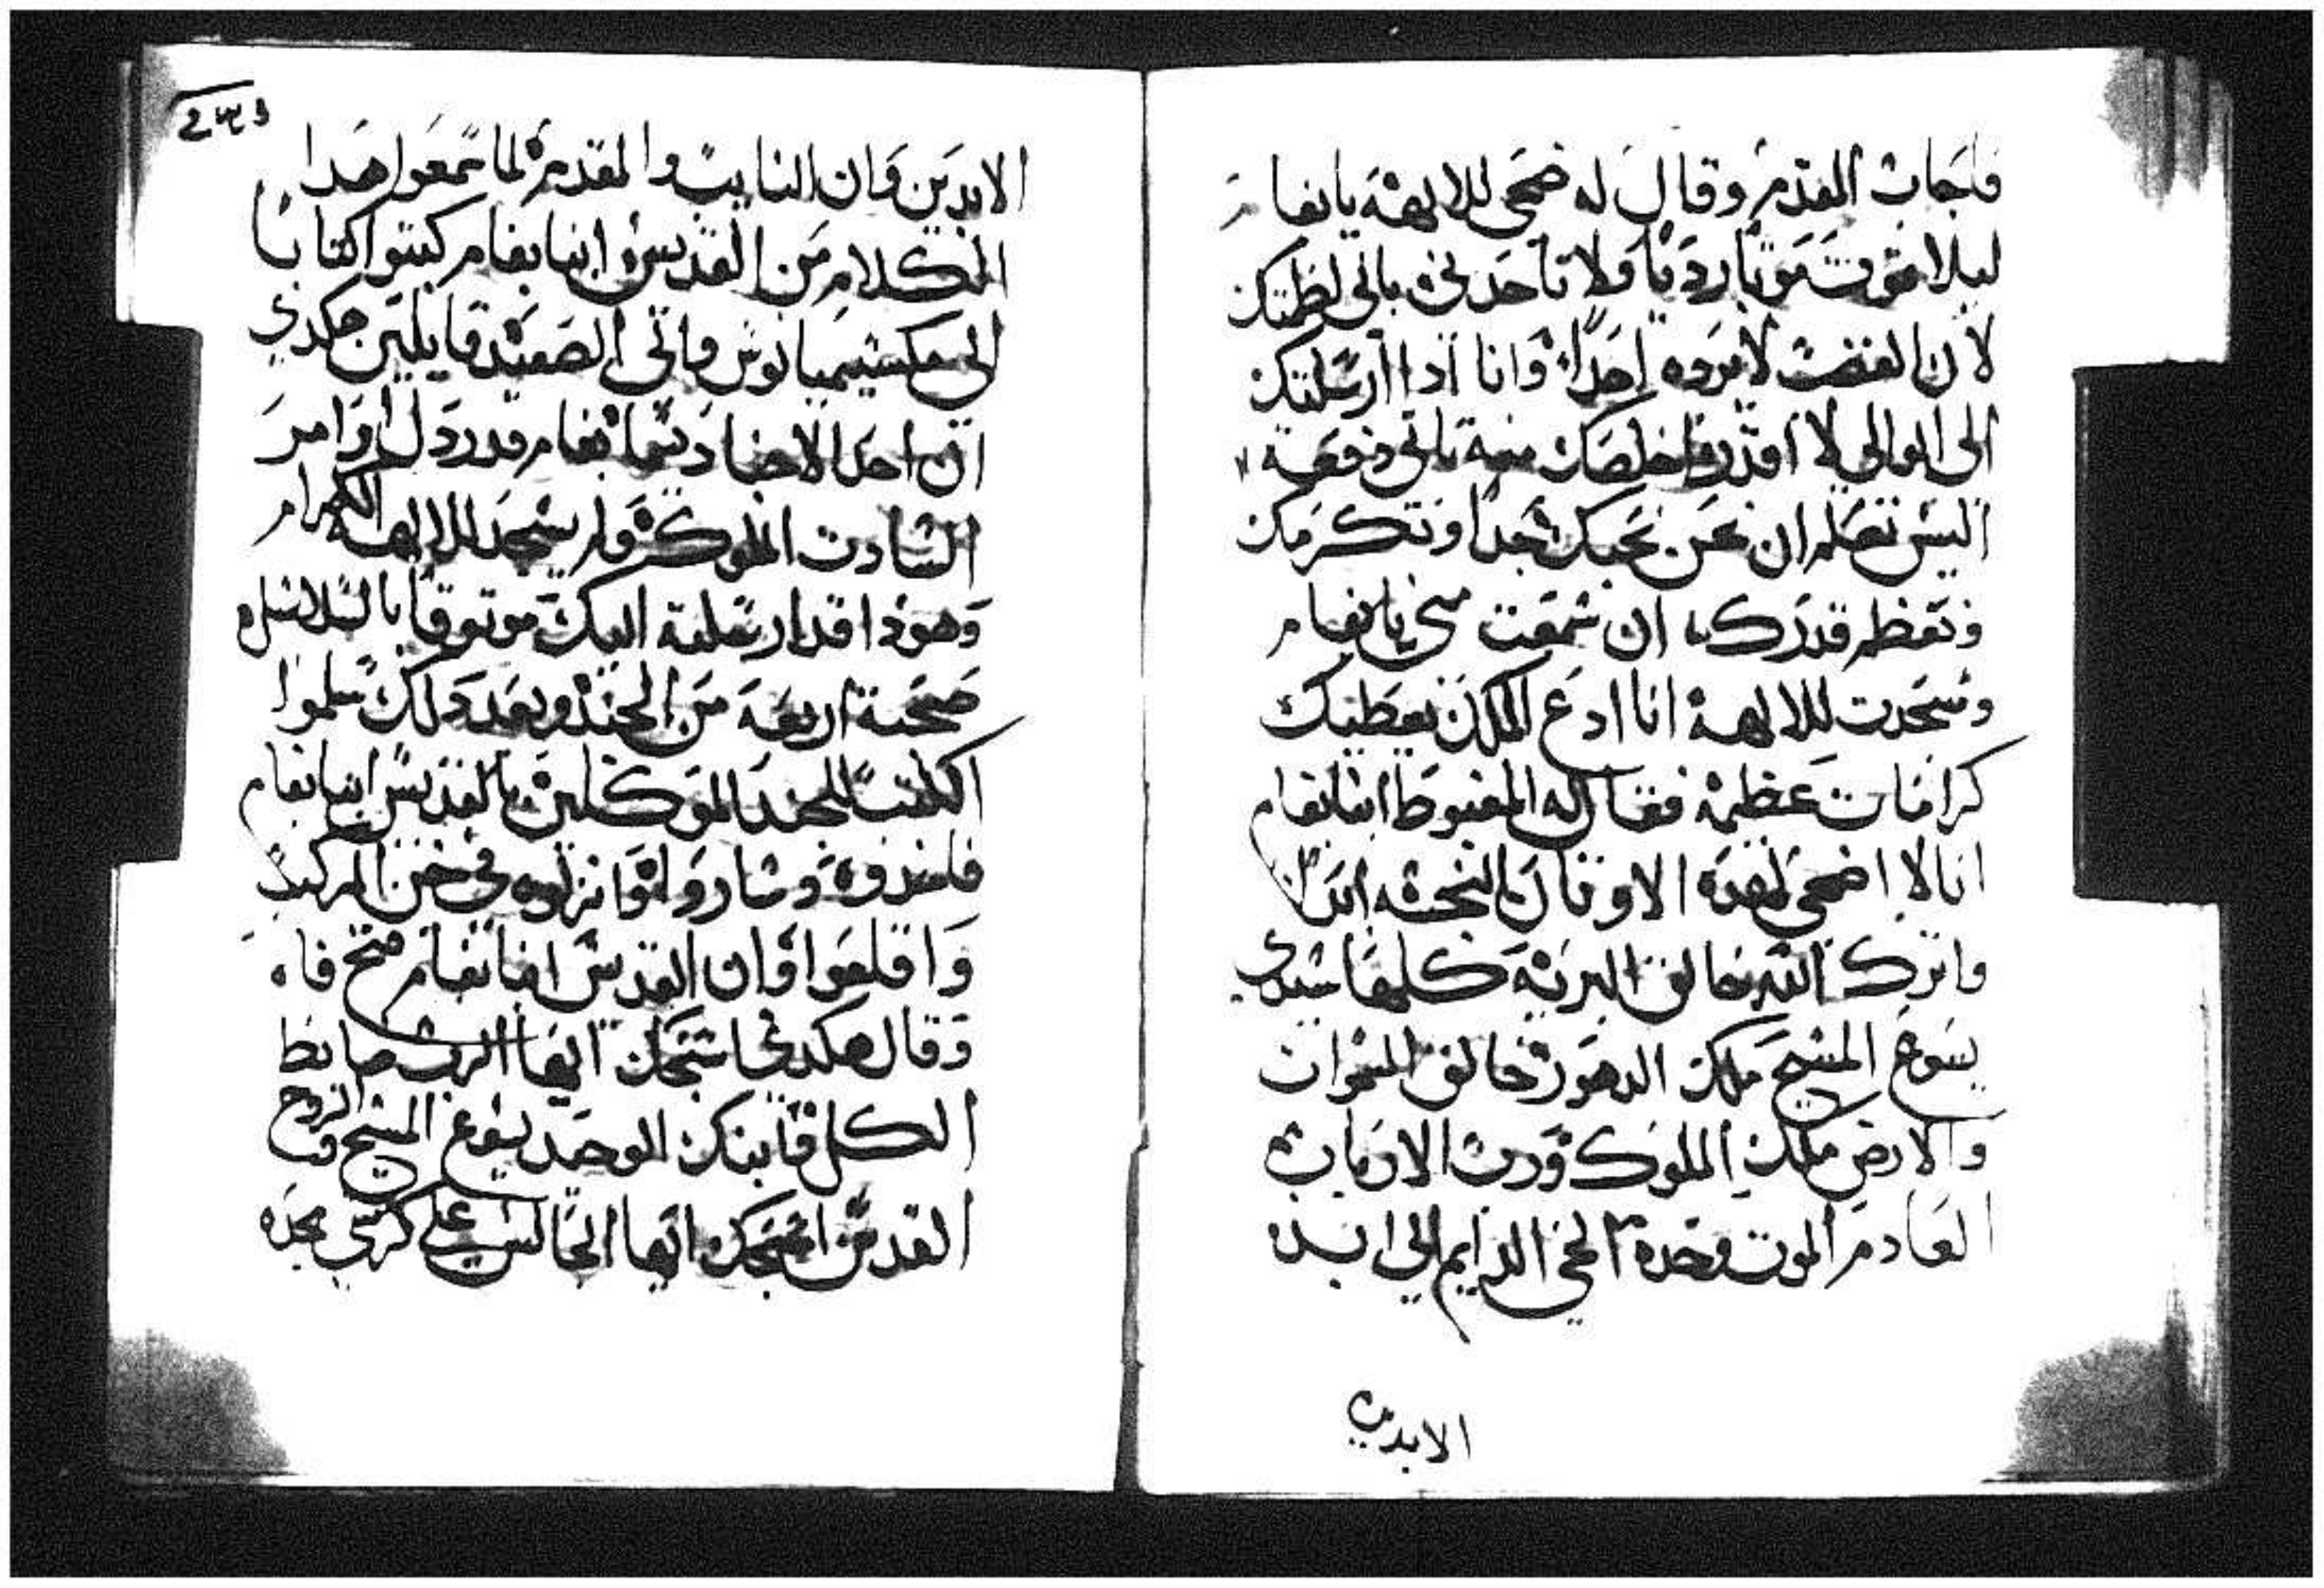 فاجاب المقدم وقال له ضحى للالهة يا بفام
ليلا تموت موتا رديا ولا تاخدني باني لظمتك
لان الغضب لامرده احدا وانا ادا ارسلتك
الى الوالي لا اقدر اخلصك منه تاني دفعه
اليس تعلم ان نحن نحبك جدا ونكرمك
ونعظم قدرك ان سمعت مني يا بفام
وسجدت للالهة انا ادع الملك يعطيك
كرامات عظيمة فقال له المغبوط انبا بفام
انا لا اضحى لهده الاوتان النجسه ابدا
واترك الله خالق البرية كلها سيدي
يسوع المسيح ملك الدهور خالق السموات
والارض ملك الملوك ورب الارباب
العادم الموت وحده الحي الدايم الى ابد
الابدين
الابدين وان النايب والمقدم لما سمعوا هدا
الكلام من القديس انبا بفام كتبوا كتابا
الى مكسيميانوس والى الصعيد قايلين هكدي
ان احد الاجناد يسما بفام قد ردل اوامر
السادت الملوك ولم يسجد للالهة الكرام
وهودا قد ارسلته اليك موتوقا بالسلاسل
صحبة اربعه من الجند وبعد دلك سلموا
الكتب للجند الموكلين بالقديس انبا بفام
فاخدوه وساروا وانزلوه في خن المركب
واقلعوا وان القديس انبا بفام فتح فاه
وقال هكدي اسبحك ايها الرب ضابط
الكل وابنك الوحيد يسوع المسيح والروح
القدس اسبحك ايها الجالس على كرسي مجده